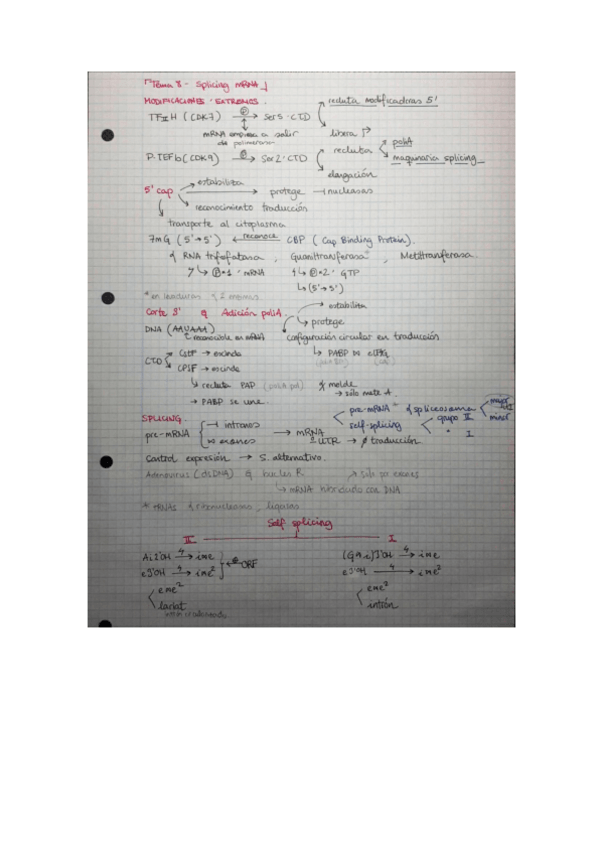 Tema 8 - Splicing mRNA
MODIFICACIONES EXTREMOS.
TFIIH (CDK7) —P→ Ser5-CTD
recluta modificadoras 5'
libera P
mRNA empieza a salir de polimerasa
P-TEFb (CDK9) —P→ Ser2-CTD
recluta
poliA
maquinaria splicing
elongación
5' cap
estabiliza
protege ⊣ nucleasas
reconocimiento traducción
transporte al citoplasma
7mG (5'→5') ← reconoce CBP (Cap Binding Protein).
RNA trifosfatasa, Guaniltransferasa, Metiltransferasa
P=1 · mRNA
P=2 · GTP
(5'→5')
* en levaduras 2 enzimas
Corte 3' & Adición poliA.
estabiliza
protege
DNA (AAUAAA)
reconocible en mRNA
configuración circular en traducción
PABP
CTD
CstF → escinde
CPSF → escinde
recluta PAP (poliA pol)
molde
→ sólo mete A.
→ PABP se une.
SPLICING.
pre-mRNA
intrones
exones
→ mRNA
UTR → ∅ traducción
pre-mRNA
spliceosoma
major
minor
self-splicing
grupo II
" I
Control expresión → S. alternativo.
Adenovirus (dsDNA) & bucles R
sólo por exones
mRNA hibridado con DNA
* tRNAs
ligasas
Self splicing
II
I
Ai2'OH → i∩e
(G∩i)3'OH → i∩e
e3'OH → i∩e²
ORF
e3'OH → i∩e²
e∩e²
lariat
e∩e²
intrón